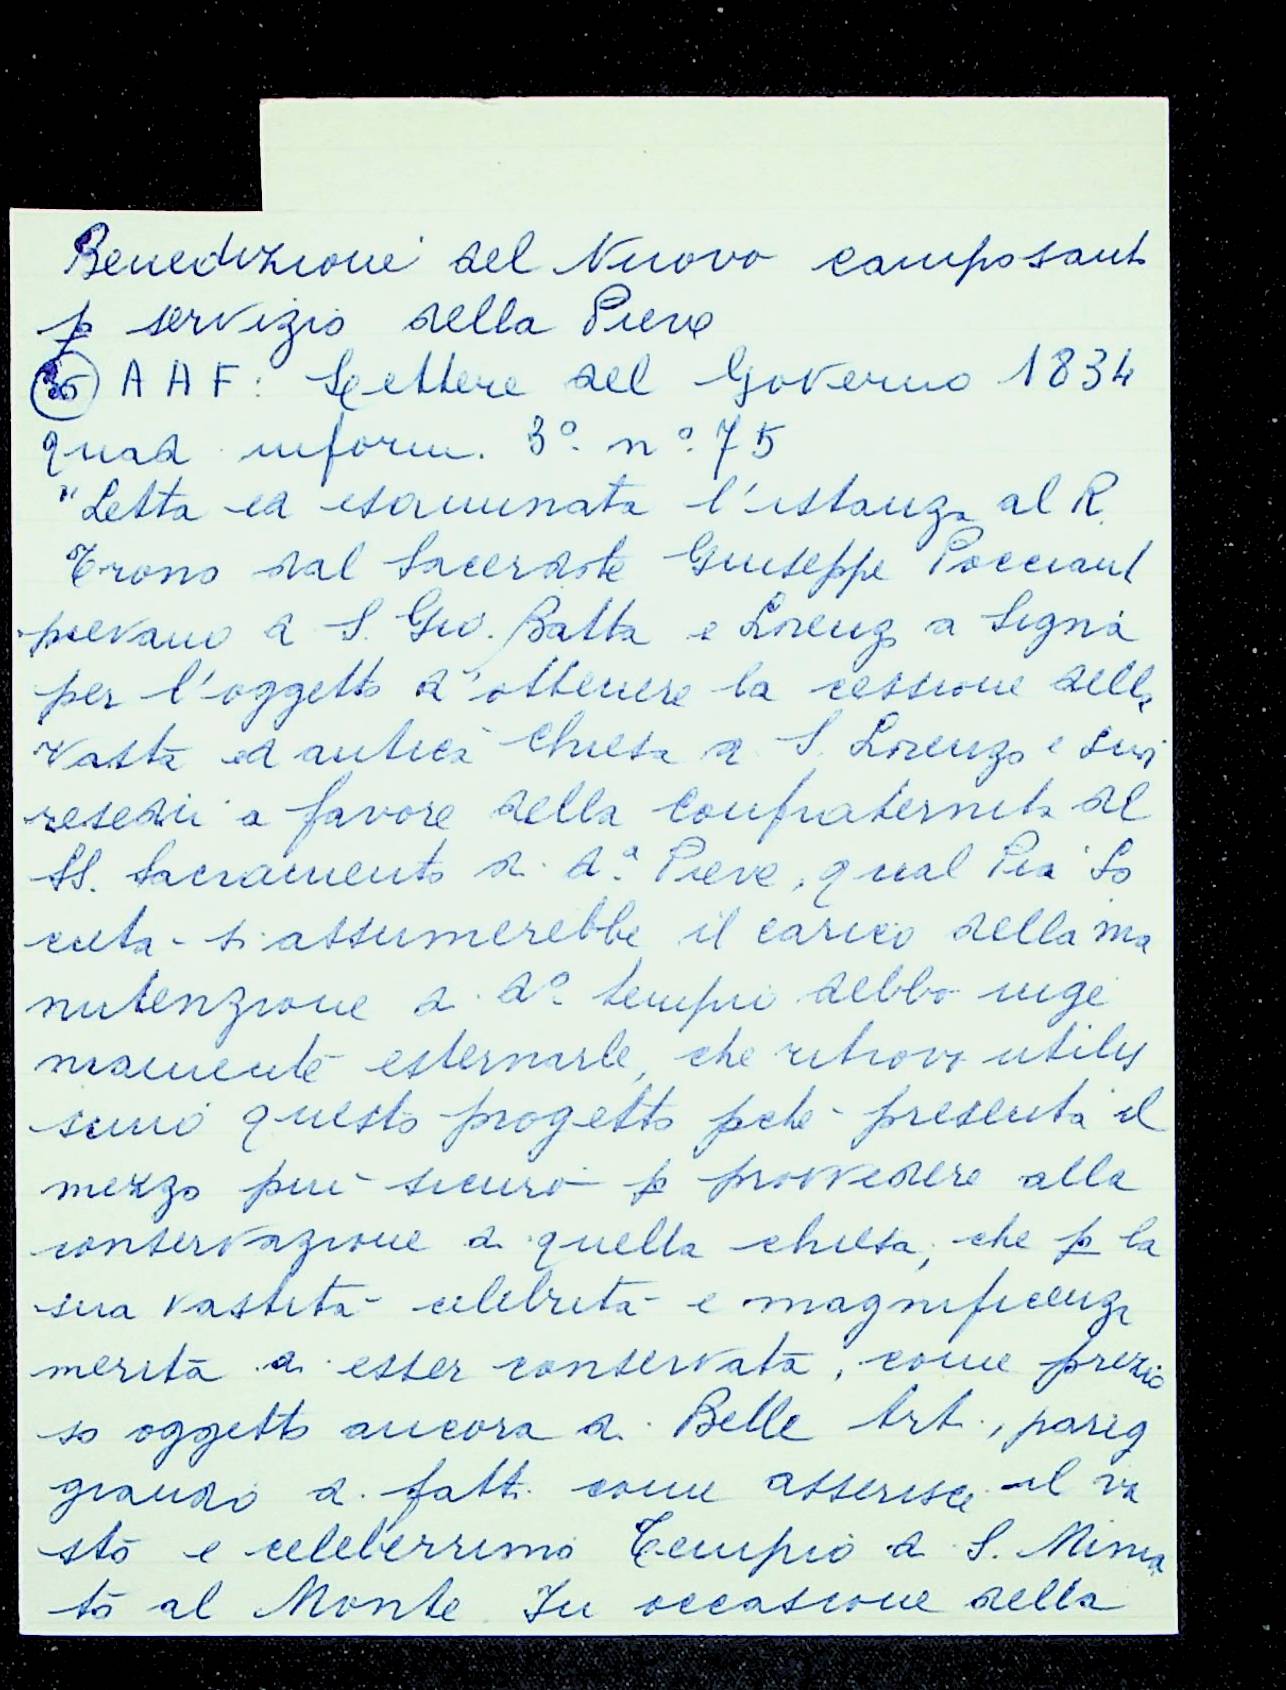 Benedizione del Nuovo camposanto
p servizio della Pieve
35 AAF: Lettere del Governo 1834
quad inform. 3º nº 75
"Letta ed esaminata l'istanza al R.
Trono dal Sacerdote Giuseppe Pocciant
pievano di S. Gio. Batta e Lorenzo a Signa
per l'oggetto d'ottenere la cessione della
vasta ed antica Chiesa di S. Lorenzo e suoi
resedii a favore della Confraternita del
SS. Sacramento di d.ª Pieve, qual Pia So
cietà si assumerebbe il carico della ma
nutenzione di dº tempio debbo inge
niamente esternarle, che ritrovo utilis
simo questo progetto pchè presenta il
mezzo più sicuro p provvedere alla
conservazione di quella chiesa, che p la
sua vastità celebrità e magnificenza
merita di esser conservata, come prezio
so oggetto ancora di Belle Arti, pareg
giando di fatti come asserisce il va
sto e celeberrimo Tempio di S. Minia
to al Monte. In occasione della